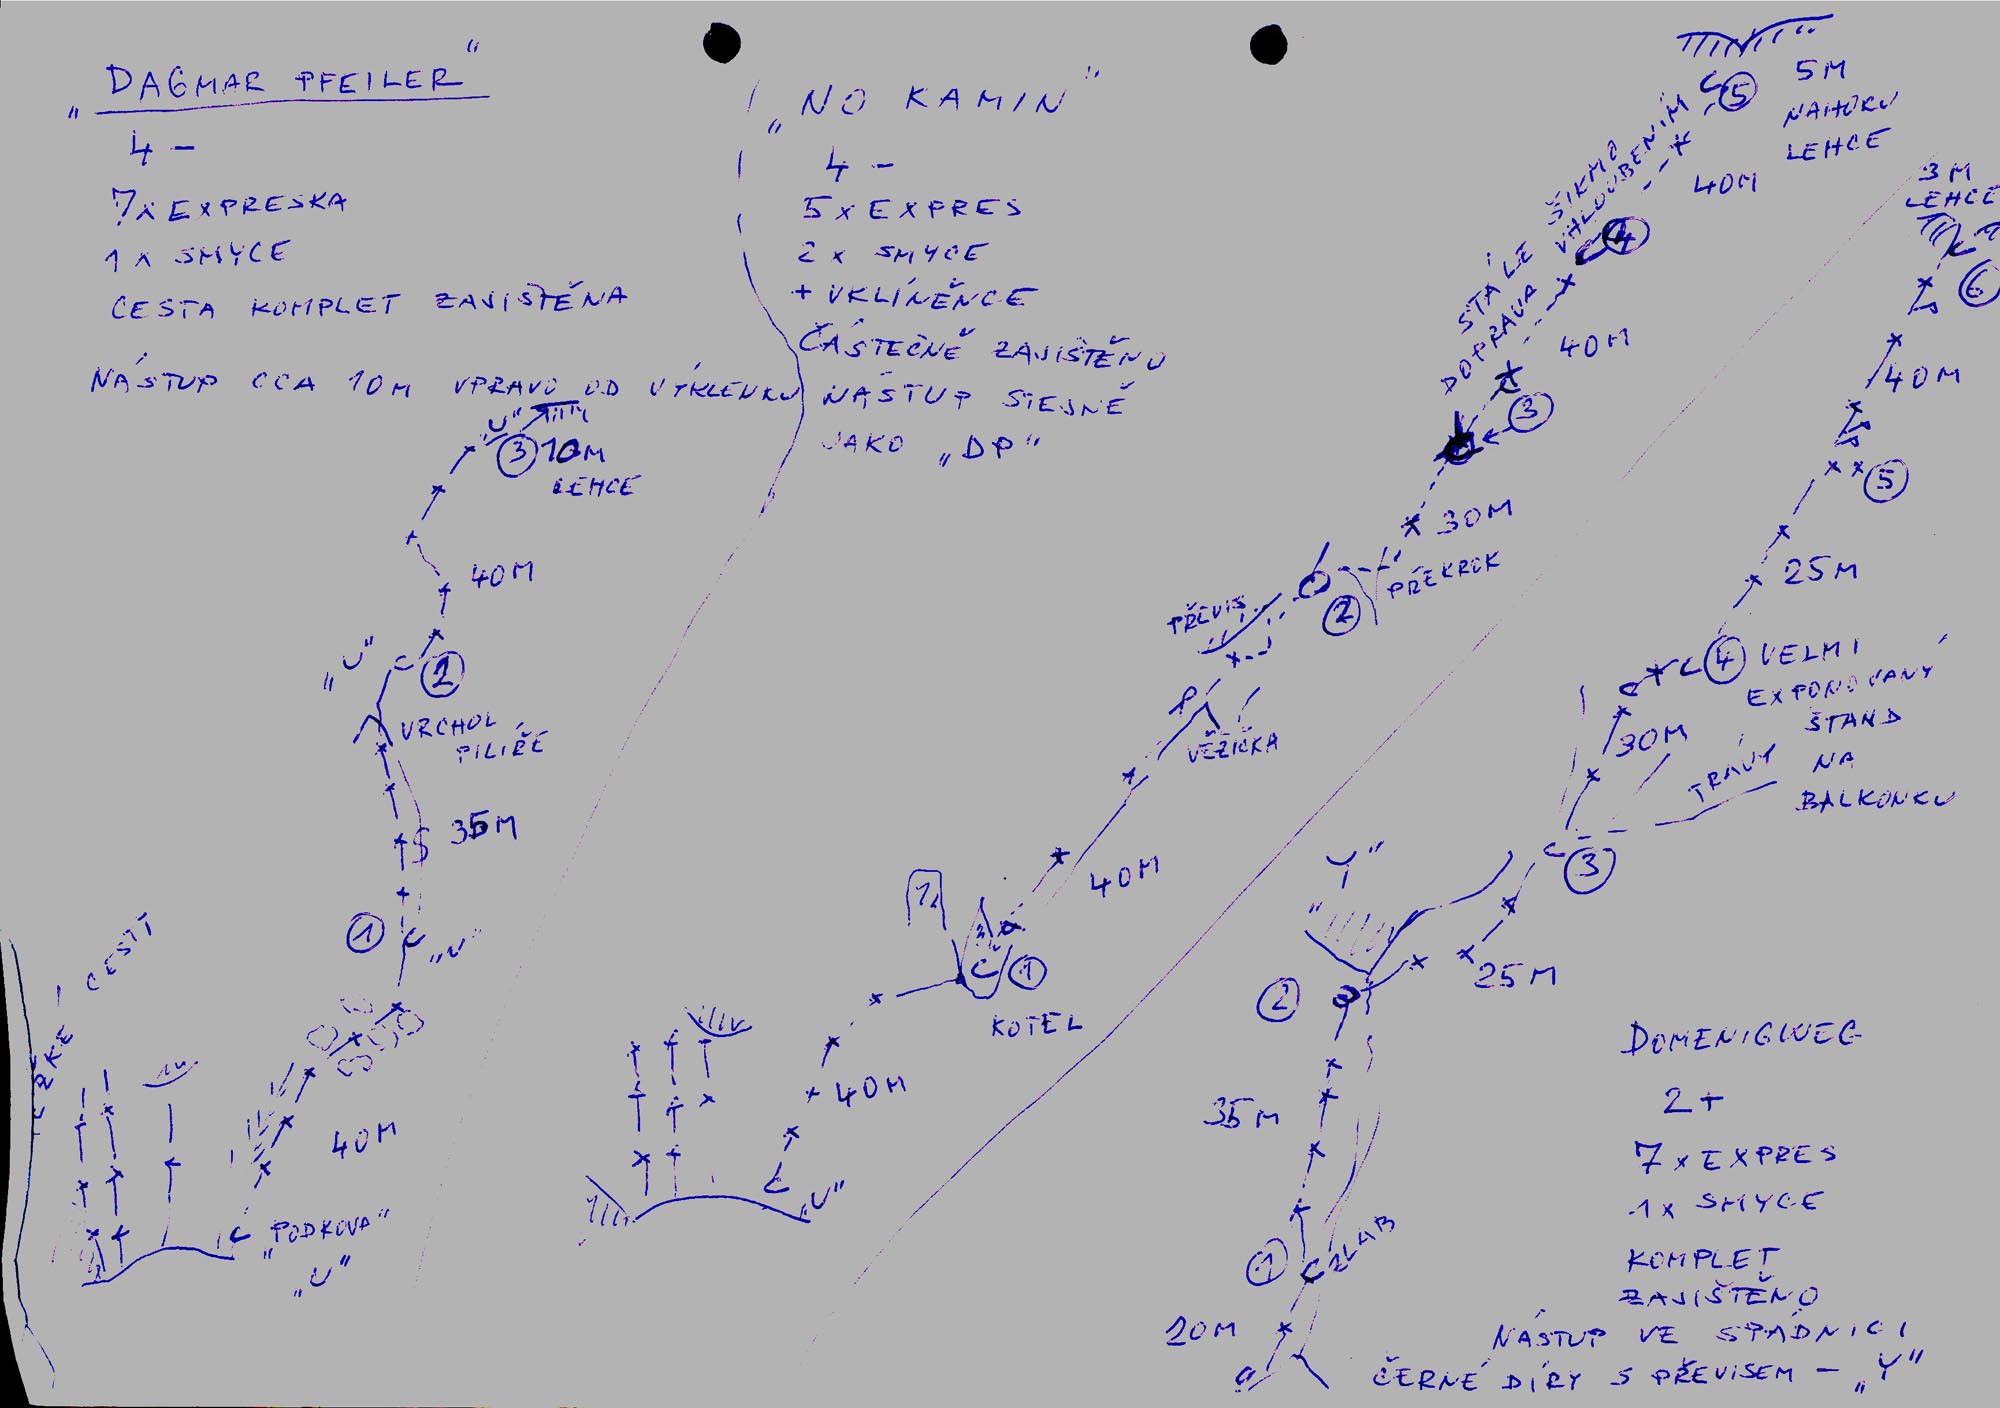 „DAGMAR PFEILER“
4 -
7x EXPRESKA
1 x SMYCE
CESTA KOMPLET ZAJIŠTĚNA
NÁSTUP CCA 10M VPRAVO OD VÝKLENKU
„U“
③ 10M
LEHCE
40M
„U“
②
VRCHOL
PILÍŘE
35M
①
„U“
CESTY
40M
„PODKOVA“
„U“
„NO KAMIN“
4 -
5 x EXPRES
2 x SMYCE
+ VKLÍNĚNCE
ČÁSTEČNĚ ZAJIŠTĚNO
NÁSTUP STEJNĚ
JAKO „DP“
5M
NAHORU
LEHCE
⑤
40M
STÁLE ŠIKMO
DOPRAVA VHLOUBENÍM
④
40M
③
30M
PŘEKROK
PŘEVIS
②
VĚŽIČKA
40M
①
KOTEL
40M
„U“
3M
LEHCE
⑥
40M
⑤
25M
④ VELMI
EXPONOVANÝ
ŠTAND
NA
BALKONKU
30M
TRÁVY
③
„Y“
25M
②
35M
①
ŽLAB
20M
DOMENIGWEG
2+
7 x EXPRES
1x SMYCE
KOMPLET
ZAJIŠTĚNO
NÁSTUP VE SPÁDNICI
ČERNÉ DÍRY S PŘEVISEM - „Y“